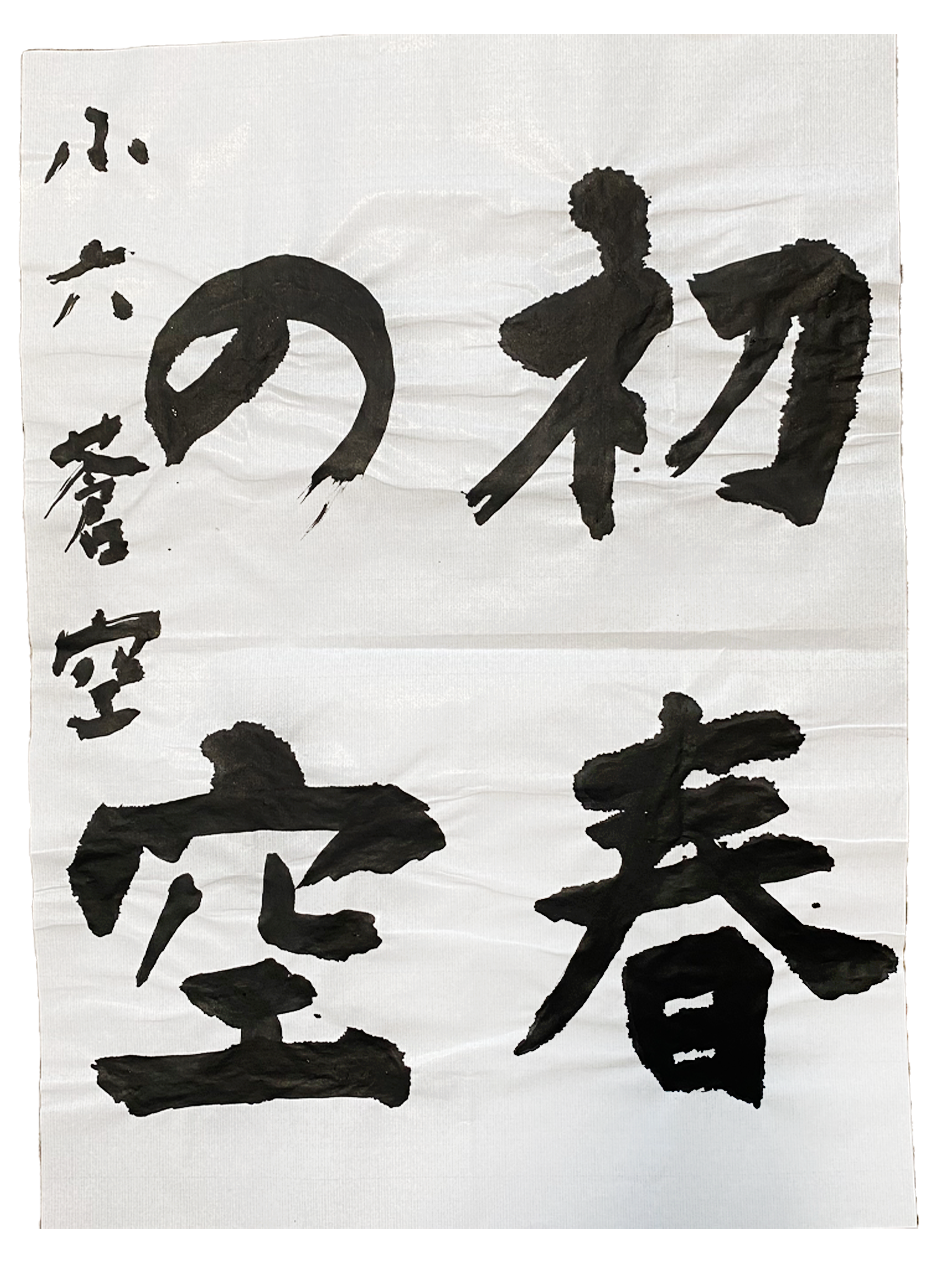 初春
の空
小六 蒼空